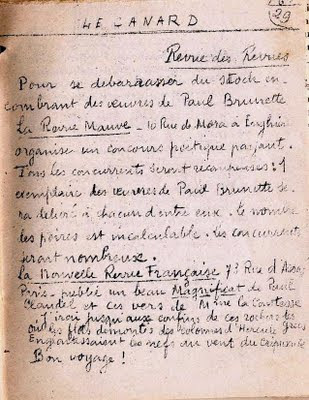 29
LE CANARD
Revue des Revues
Pour se debarrasser du stock en
combrant des œuvres de Paul Brunette
la Revue Mauve - 10 Rue de Mora à Enghien
organise un concours poetique parfait.
Tous les concurrents seront recompenses: 1
exemplaire des œuvres de Paul Brunette se
ra delivré à chacun d'entre eux. le nombre
les poires est incalculable. les concurrents
seront nombreux.
la Nouvelle Revue Française 73 Rue d'Assas
Paris. publie un beau Magnificat de Paul
Claudel et ces vers de Mme la Comtesse
J'irai jusqu'aux confins de ces rochers
ou les flots demontés des colonnes d'Hercule
Engloutissaient les nefs au vent du Crepuscule
Bon voyage!